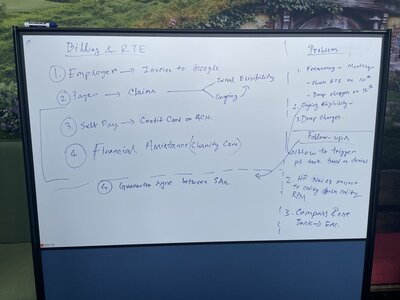 Billing & RTE
1. Employer → Invoice to Google
2. Payer → Claims
Initial Eligibility
Ongoing
3. Self Pay → Credit Card or ACH.
4. Financial Assistance (Charity Care)
4. Guarantor between SAs.
Problem
1. Frequency - Monthly
- Check RTE on 10th
- Drop charges on 15th
2. Paying Eligibility -
3. Drop charges
Follow-ups
How to trigger
pt. task based on denial
2. HP
to
3. Compass Rose
Task → Enc.